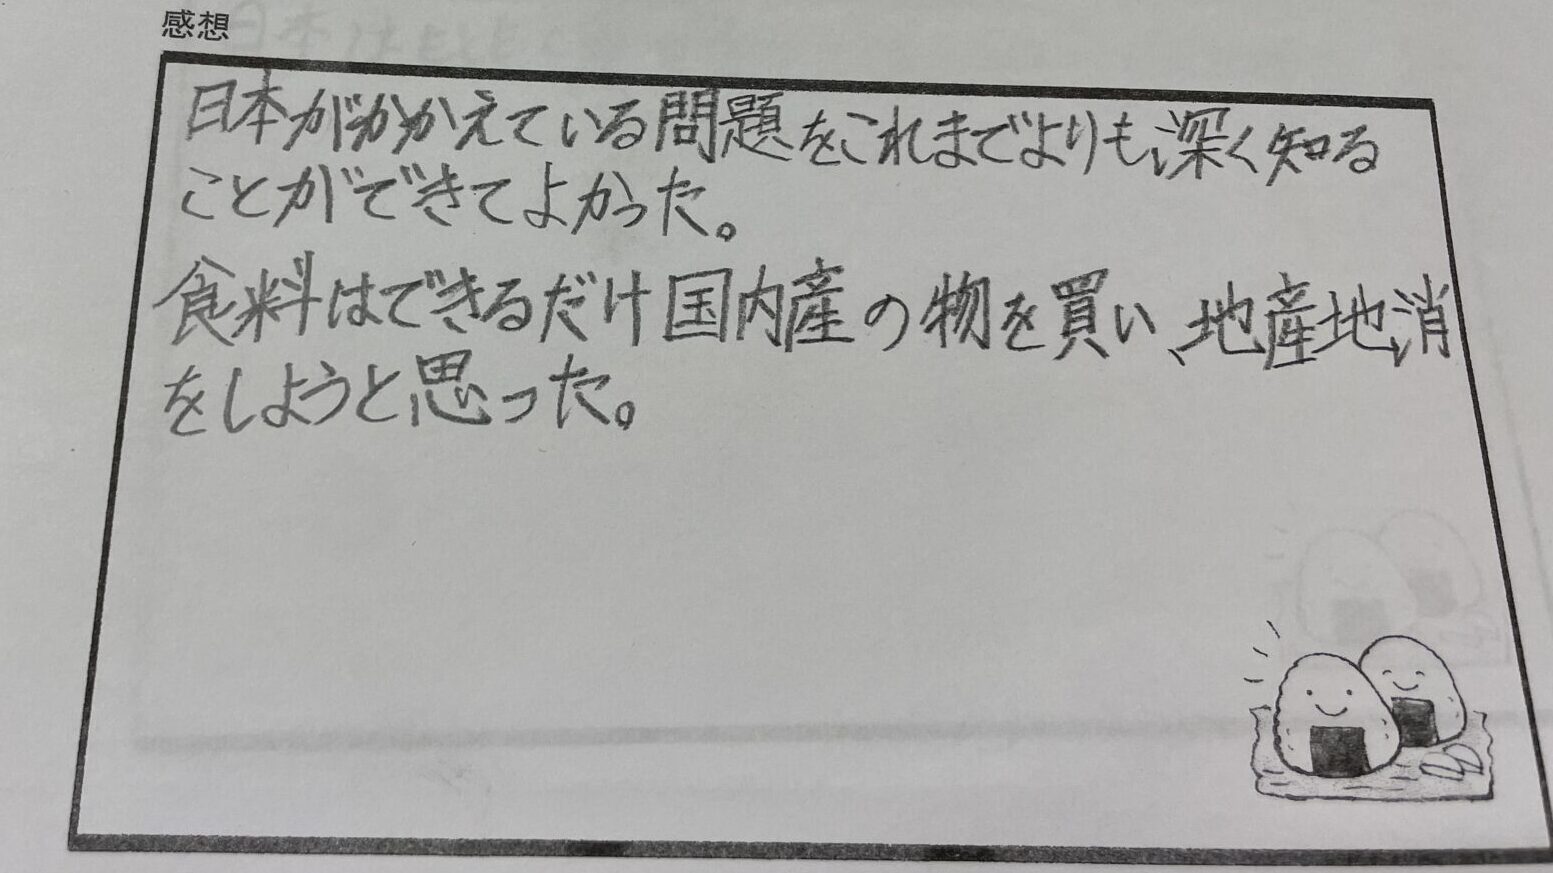 感想
日本がかかえている問題をこれまでよりも深く知る
ことができてよかった。
食料はできるだけ国内産の物を買い、地産地消
をしようと思った。